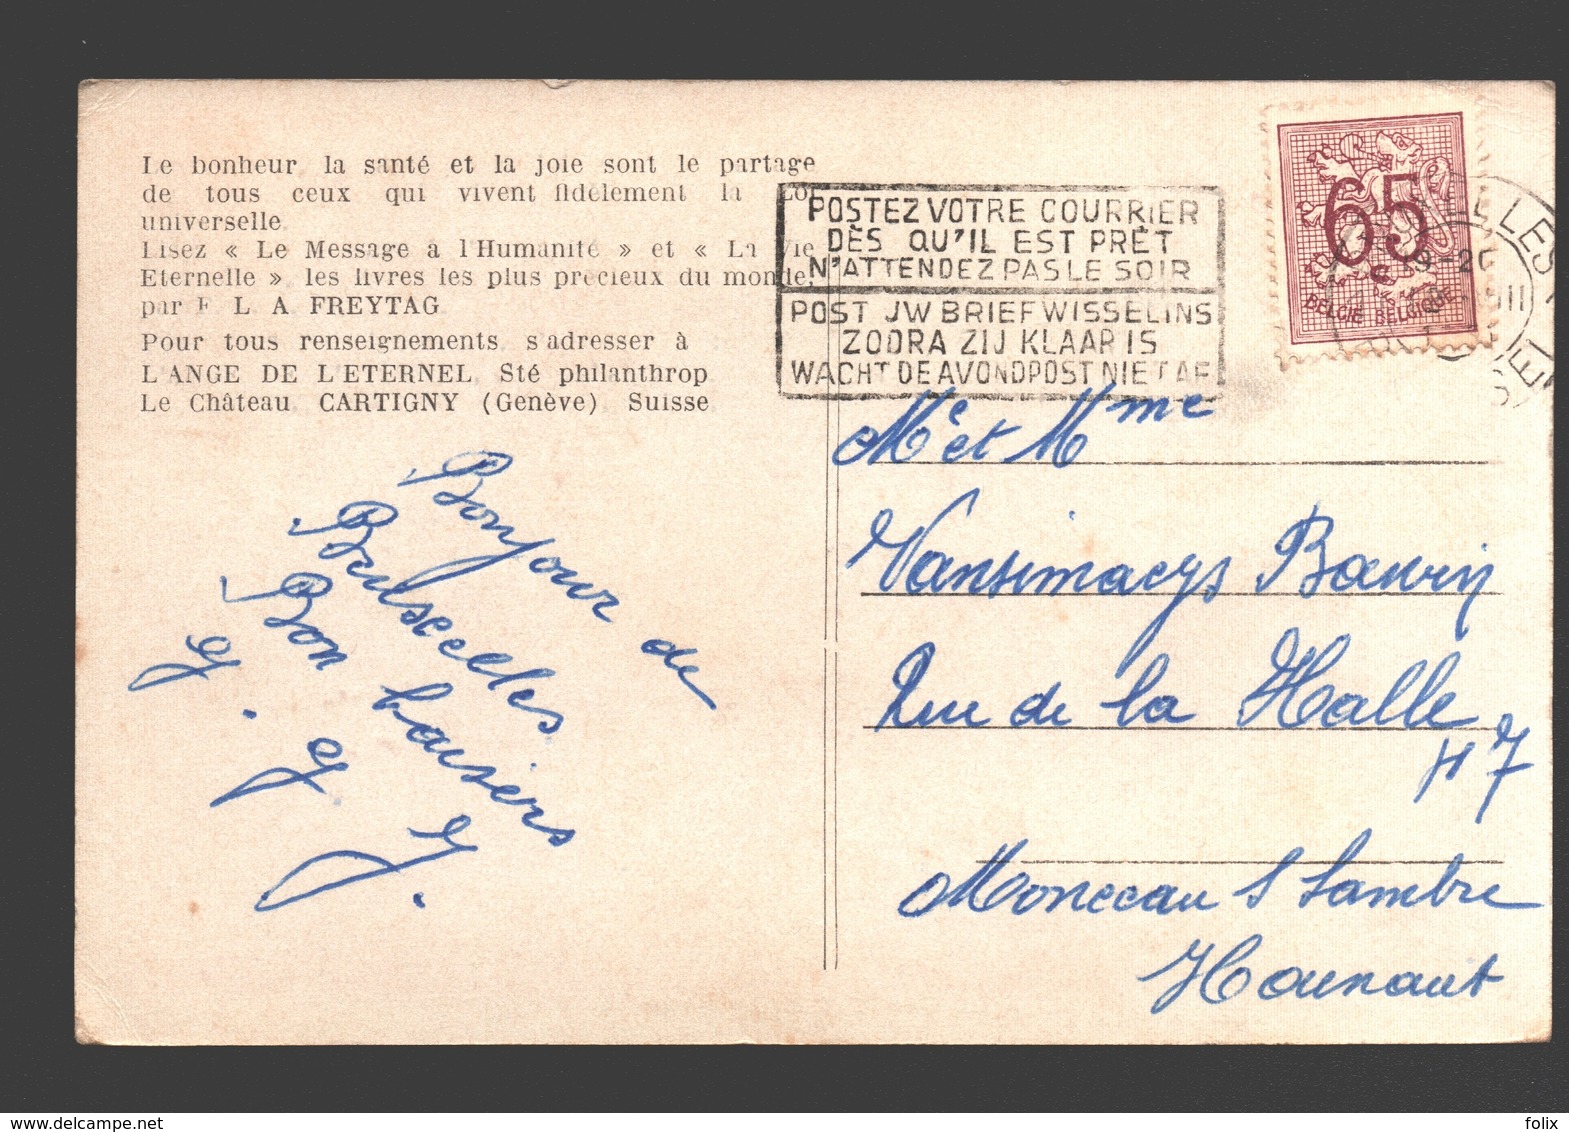 Le bonheur, la santé et la joie sont le partage
de tous ceux qui vivent fidèlement la Loi
universelle.
Lisez « Le Message à l'Humanité » et « La Vie
Eternelle » les livres les plus précieux du monde,
par F. L. A. FREYTAG
Pour tous renseignements s'adresser à
L'ANGE DE L'ETERNEL, Sté philanthrop
Le Château, CARTIGNY (Genève) Suisse
POSTEZ VOTRE COURRIER
DÈS QU'IL EST PRÊT
N'ATTENDEZ PAS LE SOIR
POST UW BRIEFWISSELING
ZODRA ZIJ KLAAR IS
WACHT DE AVONDPOST NIET AF
65
BELGIE BELGIQUE
Bonjour de
Bruxelles
Bon baisers
Mr et Mme
Rue de la Halle
47
Monceau S Sambre
Hainaut
folix